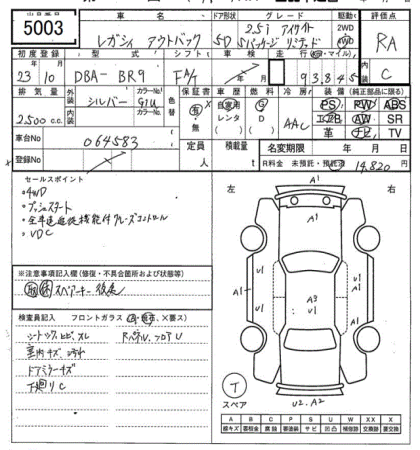 出品番号
5003
車名 ドア形状 グレード 駆動 評価点
レガシィ アウトバック 5D 2.5i アイサイト Sパッケージ リミテッド 2WD 4WD RA
初度登録 型式 シフト 車検 走行(km・マイル) 内装
23 10 DBA-BR9 FA/T 年 月 93,845 C
排気量 外装 カラーNo. 色替 保証書 車歴 燃料 冷房 装備(純正部品に限る)
2,500 c.c. シルバー G1U 有・無 自家用 レンタ G D AAC PS PW ABS
内装 カラーNo. エアB AW SR
革 ナビ TV
車台No 064583
定員 人 積載量 t 名変期限 年 月 日
登録No
R料金 未預託・預託済 14,820 円
セールスポイント
・4WD
・プッシュスタート
・全車速追従機能付クルーズコントロール
・VDC
※注意事項記入欄(修復・不具合箇所および状態等)
取 保 スペアキー 後送
検査員記入 フロントガラス (○, 無傷, ×要ス)
シートスレ ヒビ スレ Rパネル、フロアU
室内キズ 汚れ
ドアミラーキズ
下廻りC
左 右
A1
A1
U1 U1
A1 U1 A3 U1 A1
U2.A2
T
スペア
A B C P S U W XX X
線キズ 面板金 腐蝕 要塗装 サビ 凹凸 補修跡 交換済 要交換